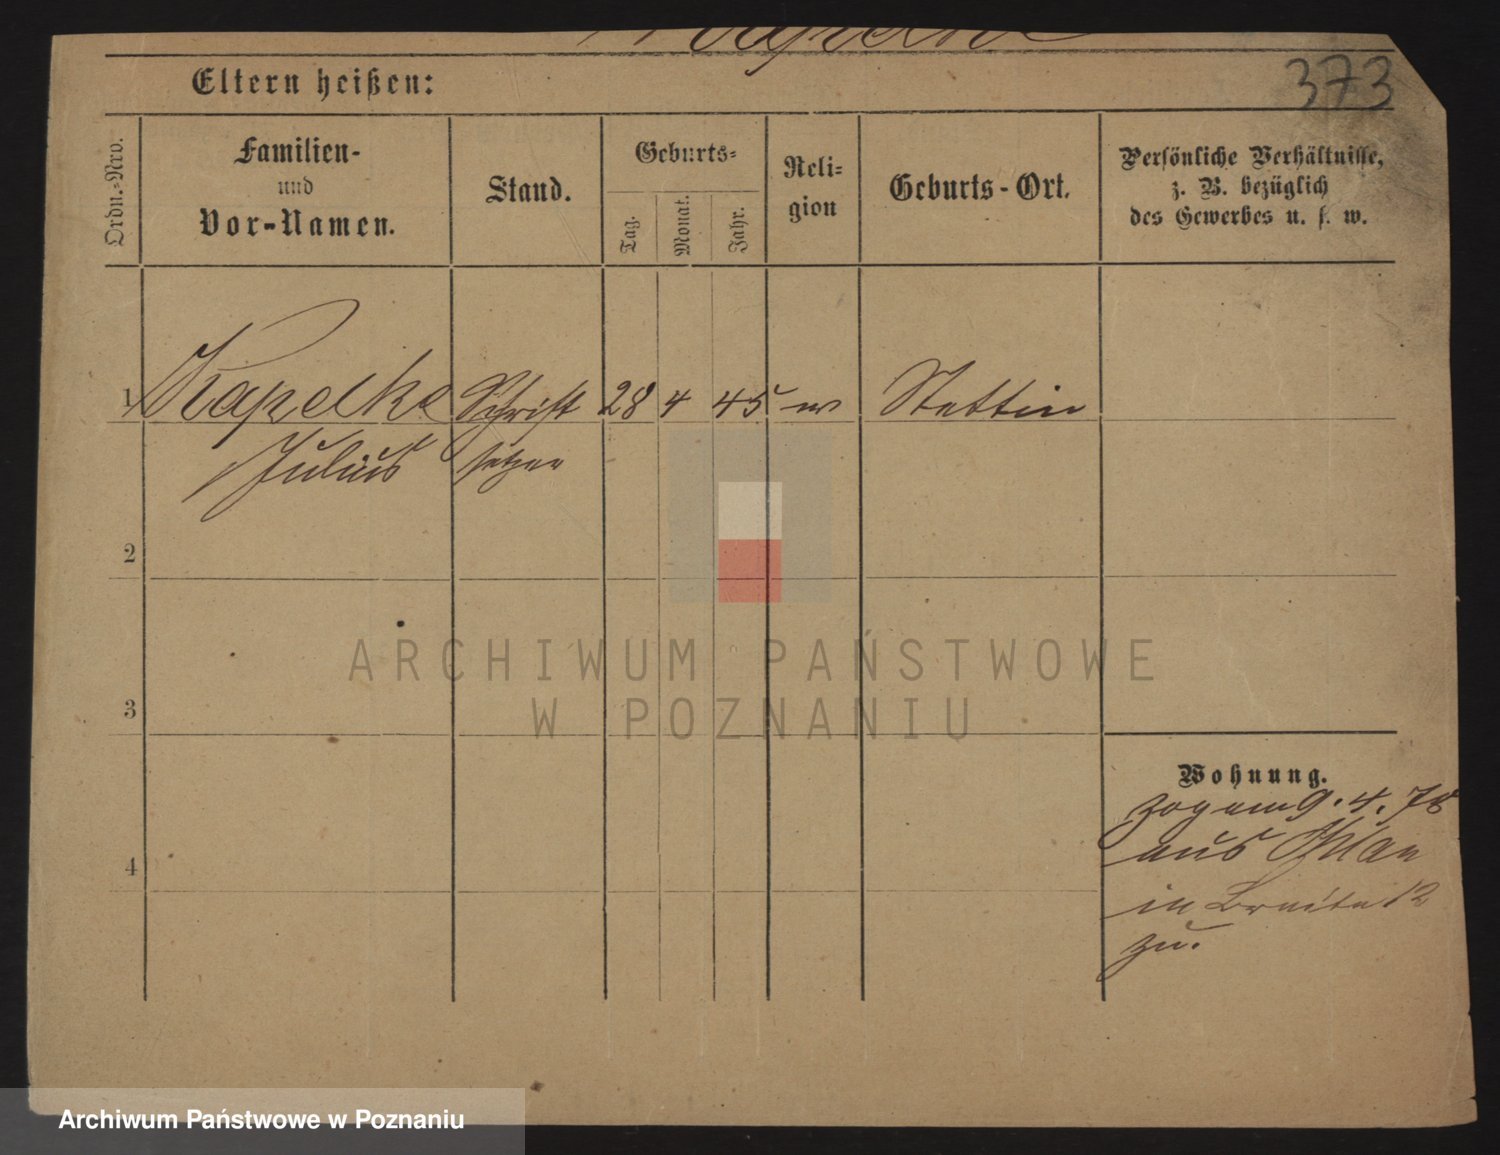 373
Eltern heißen:
Ordn.-Nro.
Familien-
und
Vor-Namen.
Stand.
Geburts-
Tag.
Monat.
Jahr.
Reli-
gion
Geburts-Ort.
Persönliche Verhältnisse,
z. B. bezüglich
des Gewerbes u. s. w.
1 Kapelke Schrift 28 4 45 ev Stettin
Julius setzer
2
3
4
Wohnung.
zog am 9. 4. 78
aus Ohlau
in Breite 12
zu.
ARCHIWUM PAŃSTWOWE
W POZNANIU
Archiwum Państwowe w Poznaniu